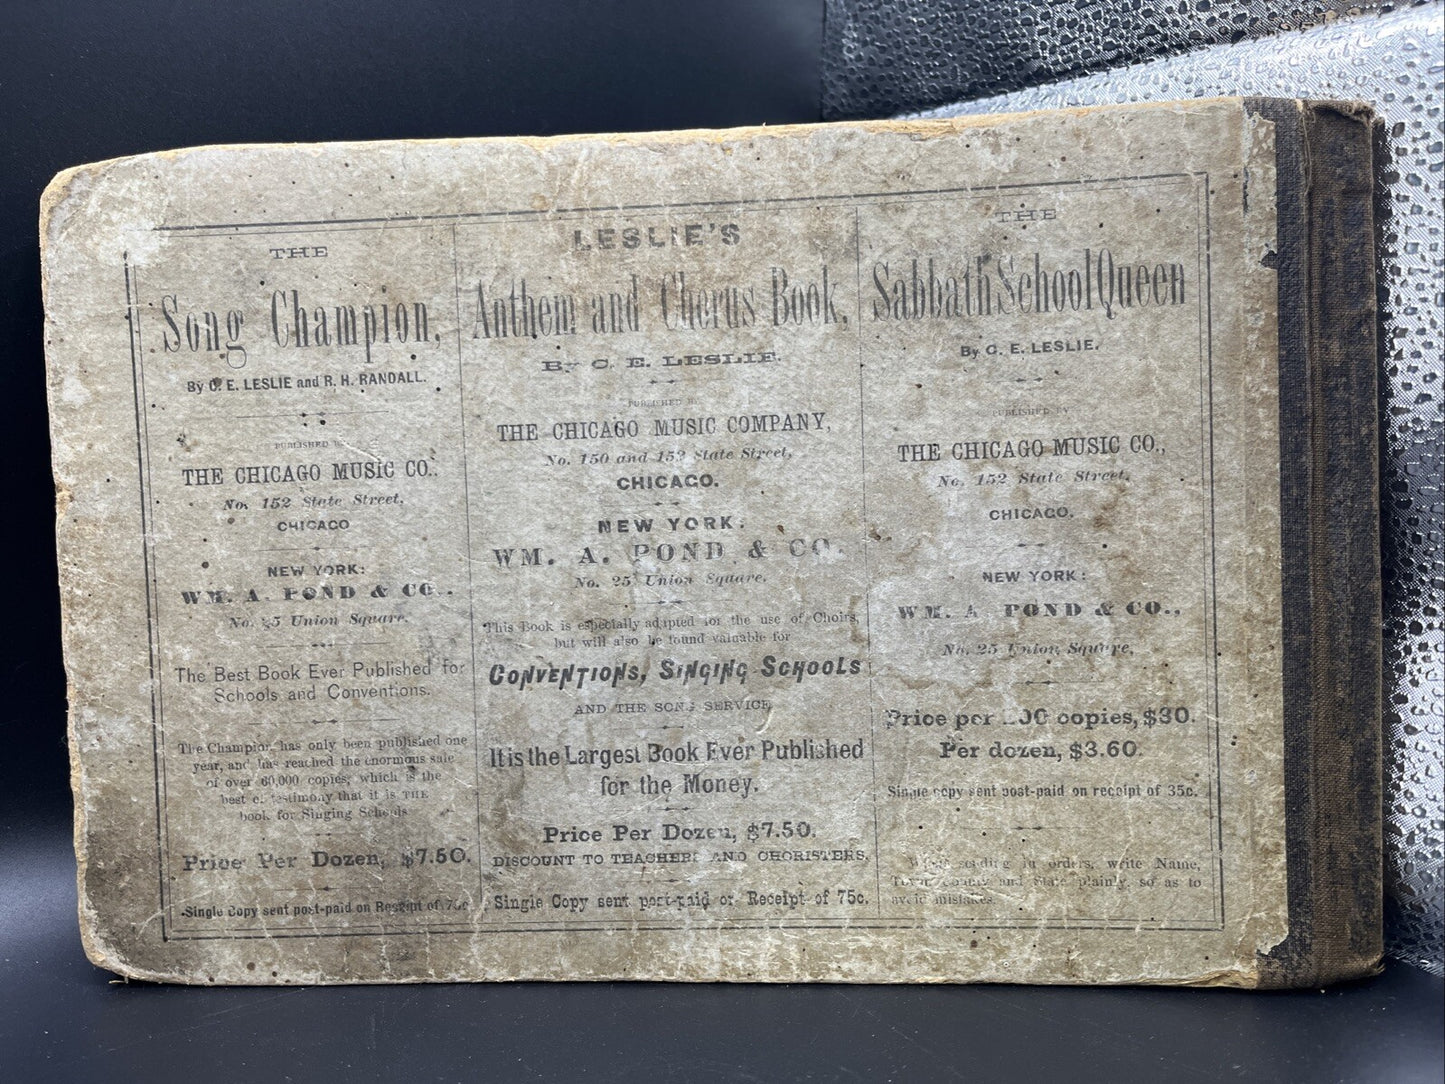 THE
Song Champion,
By C. E. LESLIE and R. H. RANDALL.
PUBLISHED BY
THE CHICAGO MUSIC CO.
No. 152 State Street,
CHICAGO
NEW YORK:
WM. A. POND & CO.
No. 25 Union Square.
The Best Book Ever Published for
Schools and Conventions.
The Champion has only been published one
year, and has reached the enormous sale
of over 60,000 copies, which is the
best of testimony that it is THE
book for Singing Schools
Price Per Dozen, $7.50.
Single Copy sent post-paid on Receipt of 75c
LESLIE'S
Anthem and Chorus Book,
By C. E. LESLIE.
PUBLISHED BY
THE CHICAGO MUSIC COMPANY,
No. 150 and 152 State Street,
CHICAGO.
NEW YORK:
WM. A. POND & CO.
No. 25 Union Square.
This Book is especially adapted for the use of Choirs,
but will also be found valuable for
CONVENTIONS, SINGING SCHOOLS
AND THE SONG SERVICE
It is the Largest Book Ever Published
for the Money.
Price Per Dozen, $7.50.
DISCOUNT TO TEACHERS AND CHORISTERS.
Single Copy sent post-paid on Receipt of 75c.
THE
Sabbath School Queen
By C. E. LESLIE.
PUBLISHED BY
THE CHICAGO MUSIC CO.,
No. 152 State Street,
CHICAGO.
NEW YORK:
WM. A. POND & CO.,
No. 25 Union Square,
Price per 100 copies, $30.
Per dozen, $3.60.
Single copy sent post-paid on receipt of 35c.
When sending in orders, write Name,
Town, County and State plainly, so as to
avoid mistakes.